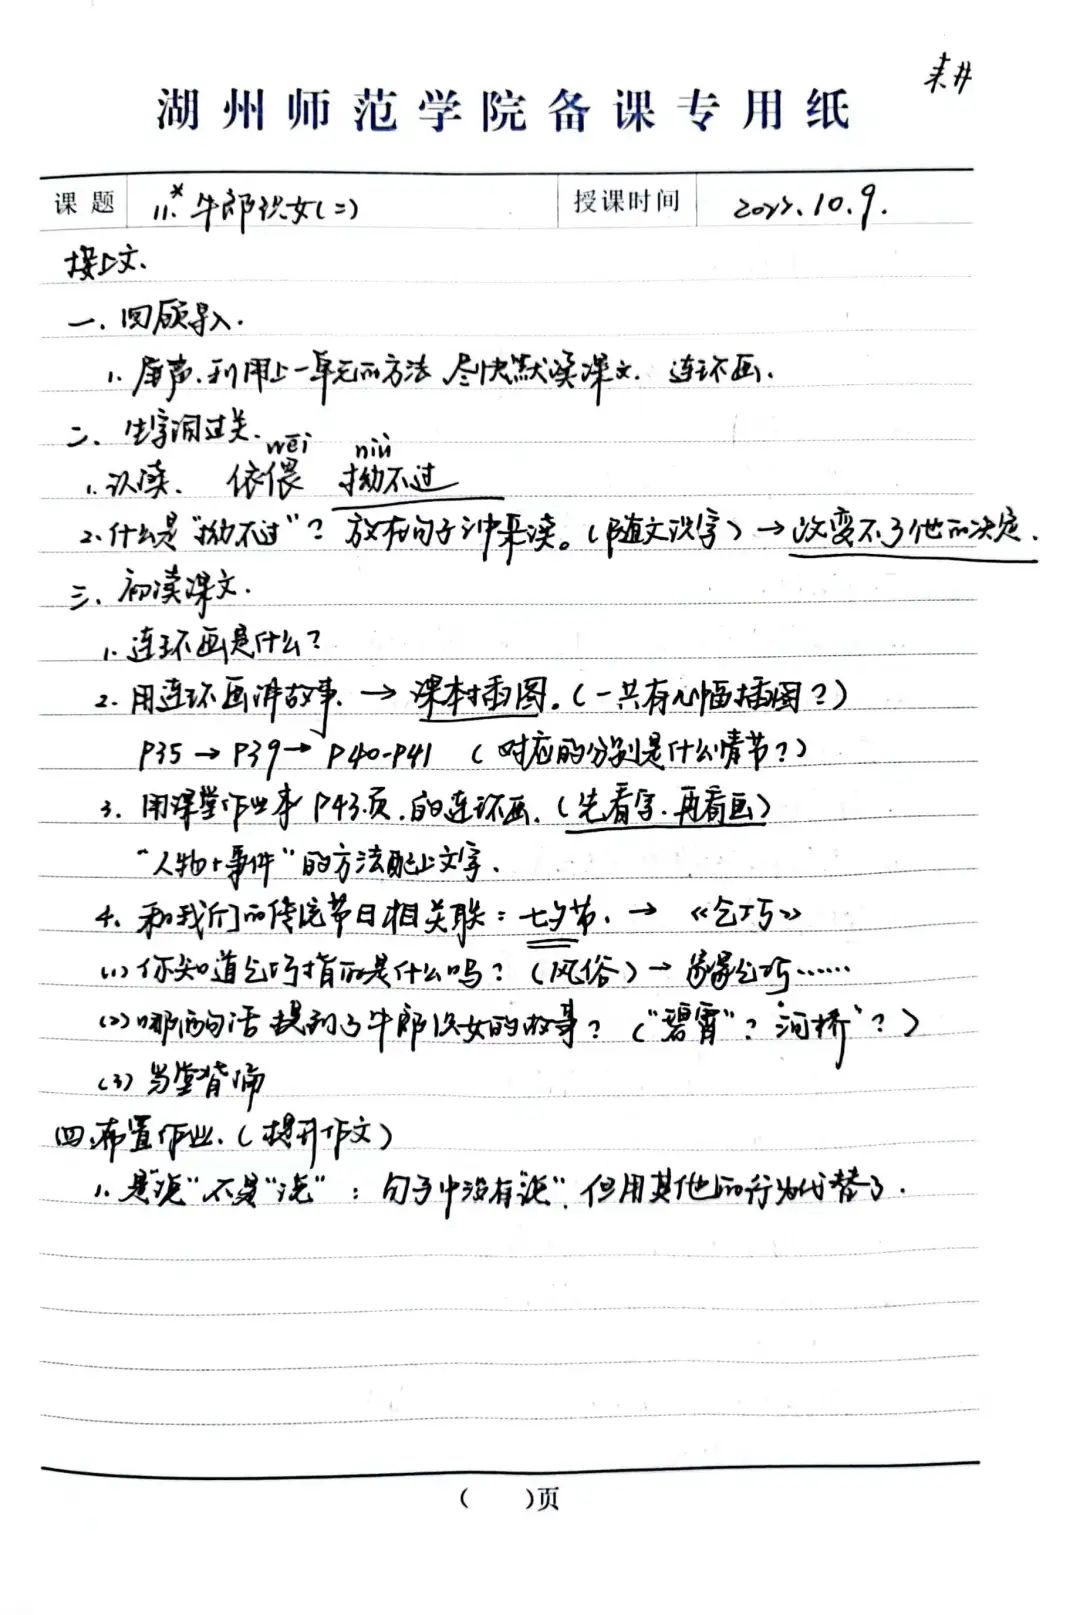 湖州师范学院备课专用纸
课题 11.* 牛郎织女(二) 授课时间 10.9.
接上文.
一、回顾导入.
1. 利用上一单元的方法 尽快默读课文. 连环画.
二、生字词过关.
wēi niù
1. 认读、 依偎 拗不过
2. 什么是“拗不过”? 放在句子中来读。(随文识字) → 改变不了他的决定.
三、初读课文.
1. 连环画是什么?
2. 用连环画讲故事. → 课本插图。(一共有几幅插图?)
P35 → P39 → P40-P41 (对应的分别是什么情节?)
3. 用课堂作业本 P43页.的连环画.(先看字.再看画)
“人物+事件”的方法配上文字.
4. 和我们的传统节日相关联: 七夕节. → 《乞巧》
(1) 你知道乞巧指的是什么吗?(风俗) → 乞巧……
(2) 哪两句话提到了牛郎织女的故事?(“碧霄”? 河桥”?)
(3) 当堂背诵
四、布置作业.(提升作文)
1. 是“说”不是“说”: 句子中没有“说”. 但用其他的行为代替了.
( )页